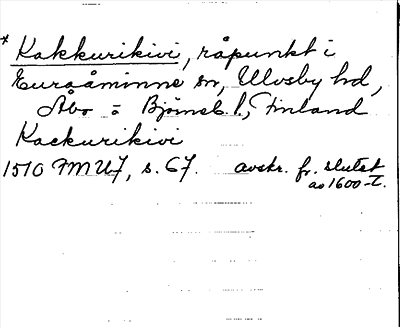 * Kakkurikivi, råpunkt i
Euraåminne sn, Ulvsby hd,
Åbo o Björneb. l., Finland
Kackurikivi
1510 FMU7, s. 67. avskr. fr. slutet
av 1600-t.